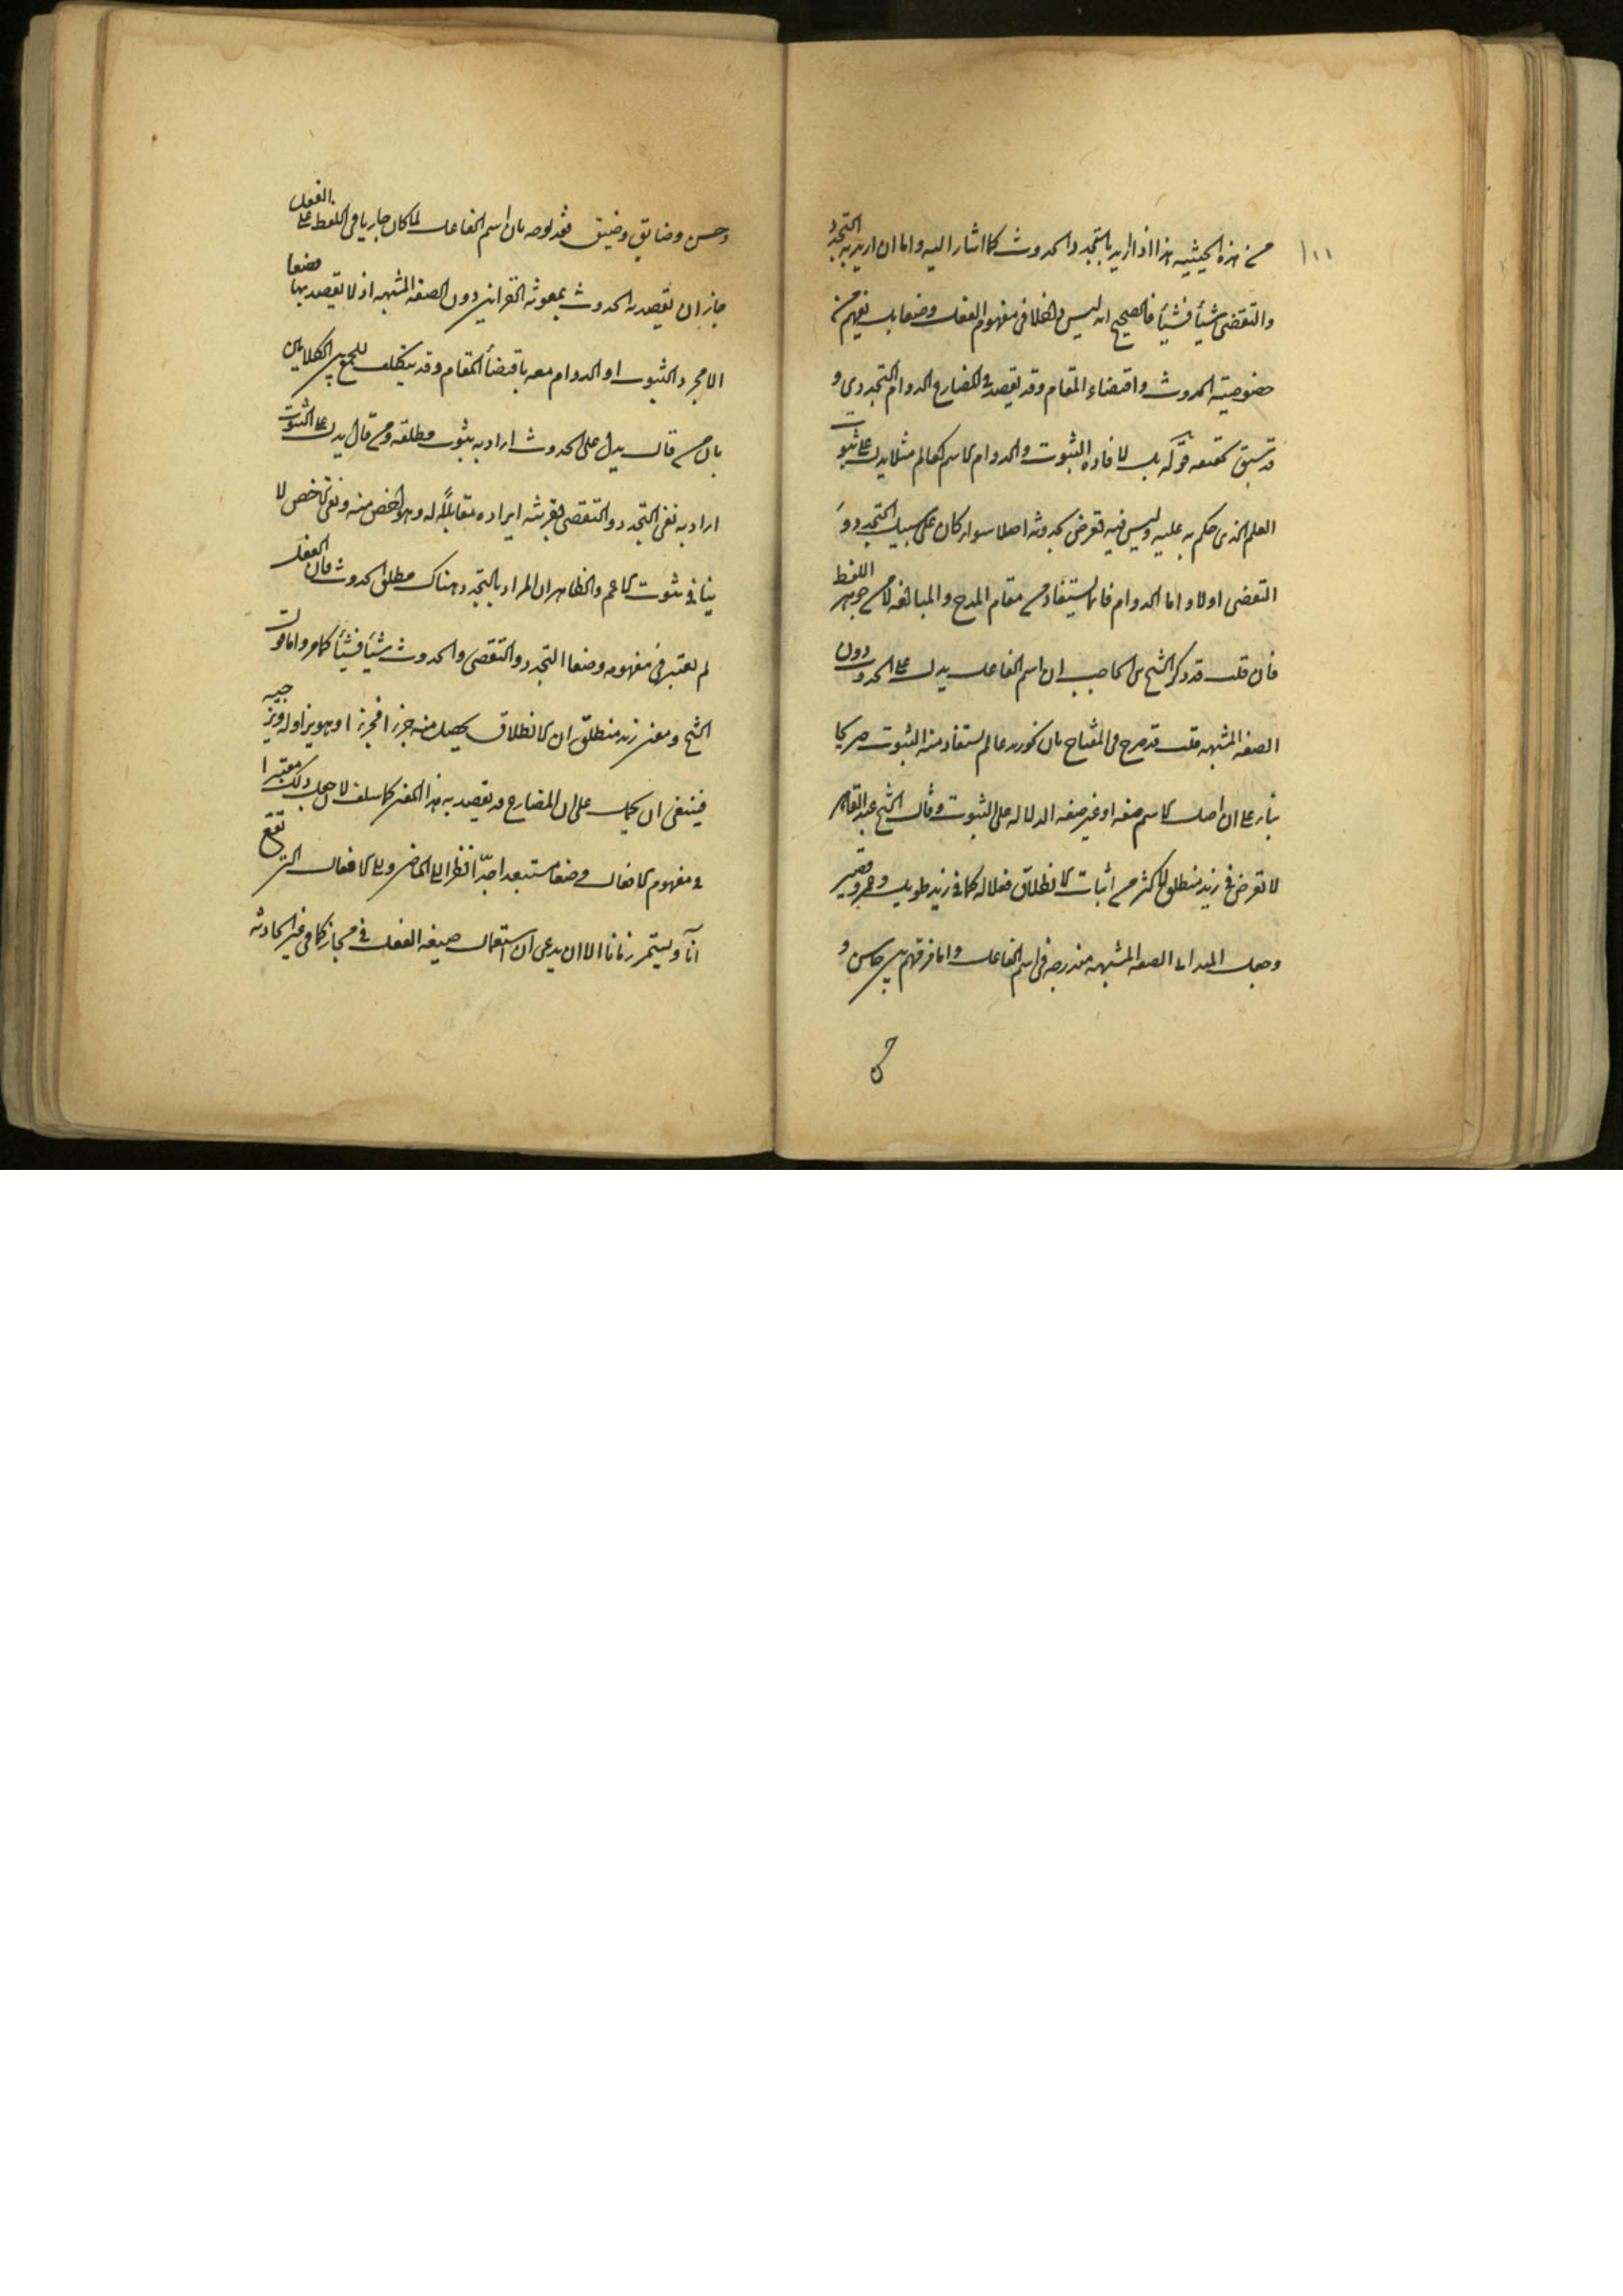 من هذه الحيثية هذا اذا اريد بالتجدد الحدوث كما اشار اليه واما ان اريد به التجدد
والتقضى شيأ فشيأ فالصحيح انه ليس داخلا فى مفهوم الفعل وضعا بل يفهم من
خصوصية الحدوث واقتضاء المقام وقد يقصد فى المضارع الدوام التجددى و
قد سبق تحقيقه قوله بل لافاده الثبوت والدوام الاسم كعالم مثلا يدل على ثبوت
العلم الذى حكم به عليه وليس فيه تعرض بحدوثه اصلا سواء كان على سبيل التجدد و
التقضى اولا واما الدوام فانما يستفاد من مقام المدح والمبالغه لا من جوهر اللفظ
فان قلت قد ذكر الشيخ ابن الحاجب ان اسم الفاعل يدل على الحدوث دون
الصفه المشبهه قلت قد صرح فى المفتاح بان نحو زيد عالم يستفاد منه الثبوت صريحا
بناء على ان اصل الاسم صفه او غير صفه الدلاله على الثبوت وقال الشيخ عبد القاهر
لا تعرض فى زيد منطلق لاكثر من اثبات الانطلاق فعلا له كما فى زيد طويل وعمرو قصير
وجعل الصفه المشبهه مندرجه فى اسم الفاعل واما فرقهم بين حاسن و
حسن
وحسن وضايق وضيق فقد يوجه بان اسم الفاعل لما كان جاريا فى اللفظ على الفعل
جاز ان يقصد به الحدوث بمعونة القراين دون الصفه المشبهه اذ لا يقصد بها وضعا
الا مجرد الثبوت او الدوام معه باقتضأ المقام وقد يتكلف للجمع بين الكلامين
بان من قال يدل على الحدوث اراد به ثبوت مطلقه ومن قال يدل على الثبوت
اراد به نفى التجدد والتقضى بقرينة ايراده مقابلاً له وهو اخص منه ونفى الاخص لا
ينافى ثبوت الاعم والظاهر ان المراد بالتجدد هناك مطلق الحدوث فان الفعل
لم يعتبر فى مفهومه وضعا التجدد والتقضى والحدوث شيأ فشيأ كما مر واما قول
الشيخ ومعنى زيد منطلق ان الانطلاق يحصل منه جزءا فجزءا وهو يزاوله ويزجيه
فينبغى ان يحمل على ان المضارع قد يقصد به هذا المعنى كما سلف لا جعل ذلك معتبرا
فى مفهوم الافعال وضعا مستبعد اجدّا نظرا الى الماضى والى الافعال التى تقع
آنا ويستمر زمانا الا ان يدعى ان استعمال صيغه الفعل فى مجاز كما فى غير الحادثه